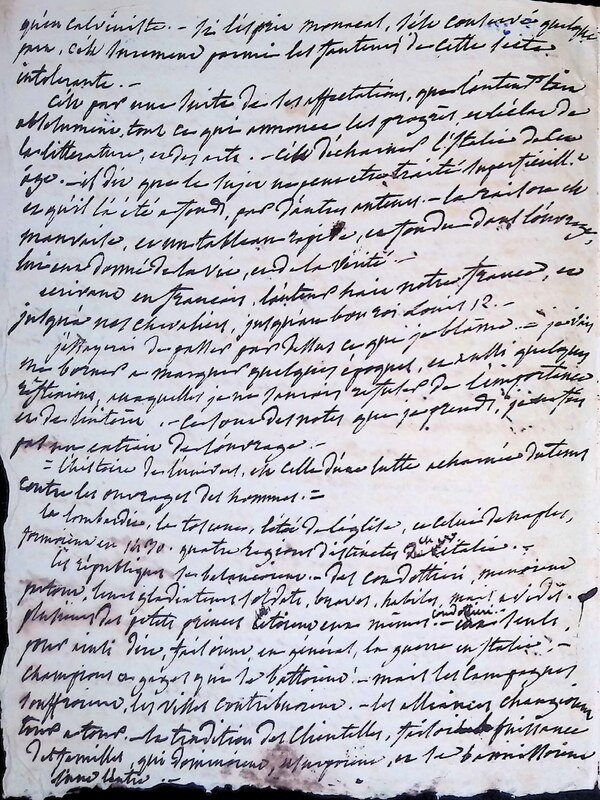 qu'en calviniste. - Si l'esprit monacal, s'est conservé quelque
part, c'est surement parmi les fauteurs de cette secte
intolerante. -
C'est par une suite de ses affectations, que l'auteur
absolument, tout ce qui annonce les progrès, et l'éclat de
la litterature, et des arts. - c'est decharner l'Italie de cet
age. - il dit que le sujet ne peut etre traité superficiell.t
et qu'il l'a été a fond, par d'autres auteurs. - la raison est
mauvaise, et un tableau rapide, et fondu dans l'ouvrage,
lui eut donné de la vie, et de la verité. -
ecrivant en francais, l'auteur hait notre france, et
jusqu'a nos chevaliers, jusqu'au bon roi Louis 12. -
j'essayerai de passer par dessus ce que je blâme. - je vais
me borner a marquer quelques époques, et aussi quelques
réflexions, auxquelles je ne saurais refuser de l'importance
et de l'intérêt. - ce sont des notes que je prends, je ne fais
pas un extrait de l'ouvrage. -
= l'histoire de l'univers, est celle d'une lutte acharnée du tems
contre les ouvrages des hommes. =
la lombardie, la toscane, l'état de l'église, et celui de naples,
formoient en 1430. quatre regions distinctes en Italie. -
les républiques se balancoient. - des condottieri, menoient
partout, leurs gladiateurs soldats, braves, habiles, mais avides.
plusieurs des petits princes étoient eux mêmes condottieri. - eux seuls,
pour ainsi dire, faisoient, en général, la guerre en Italie. -
champions a gages qui se battoient. - mais les campagnes
souffroient, les villes contribuoient. - les alliances changeoient
tour a tour. - la tradition des Clientelles, faisoit la puissance
des familles, qui dominoient, usurpoient, et se bannissoient
l'une l'autre. -